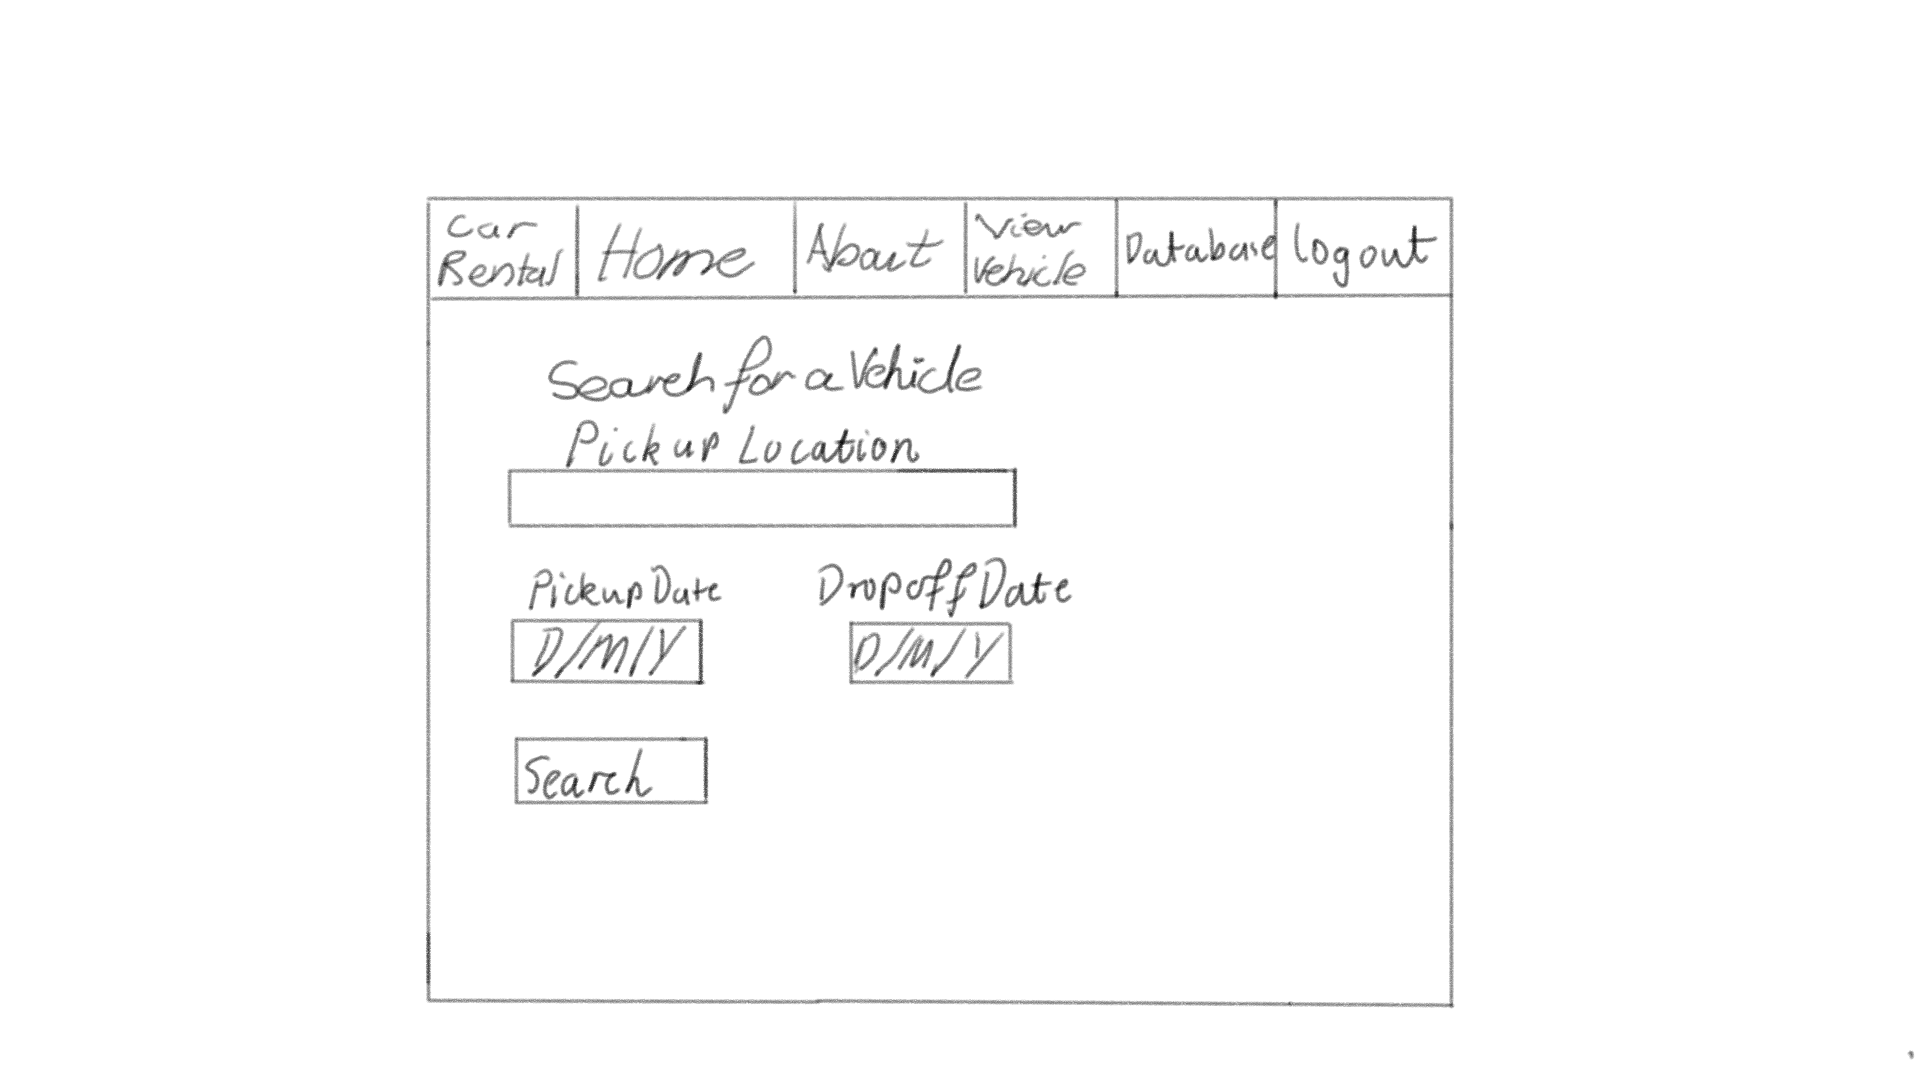 Car
Rental
Home
About
View
Vehicle
Database
logout
Search for a Vehicle
Pickup Location
Pickup Date
Dropoff Date
D/M/Y
D/M/Y
Search